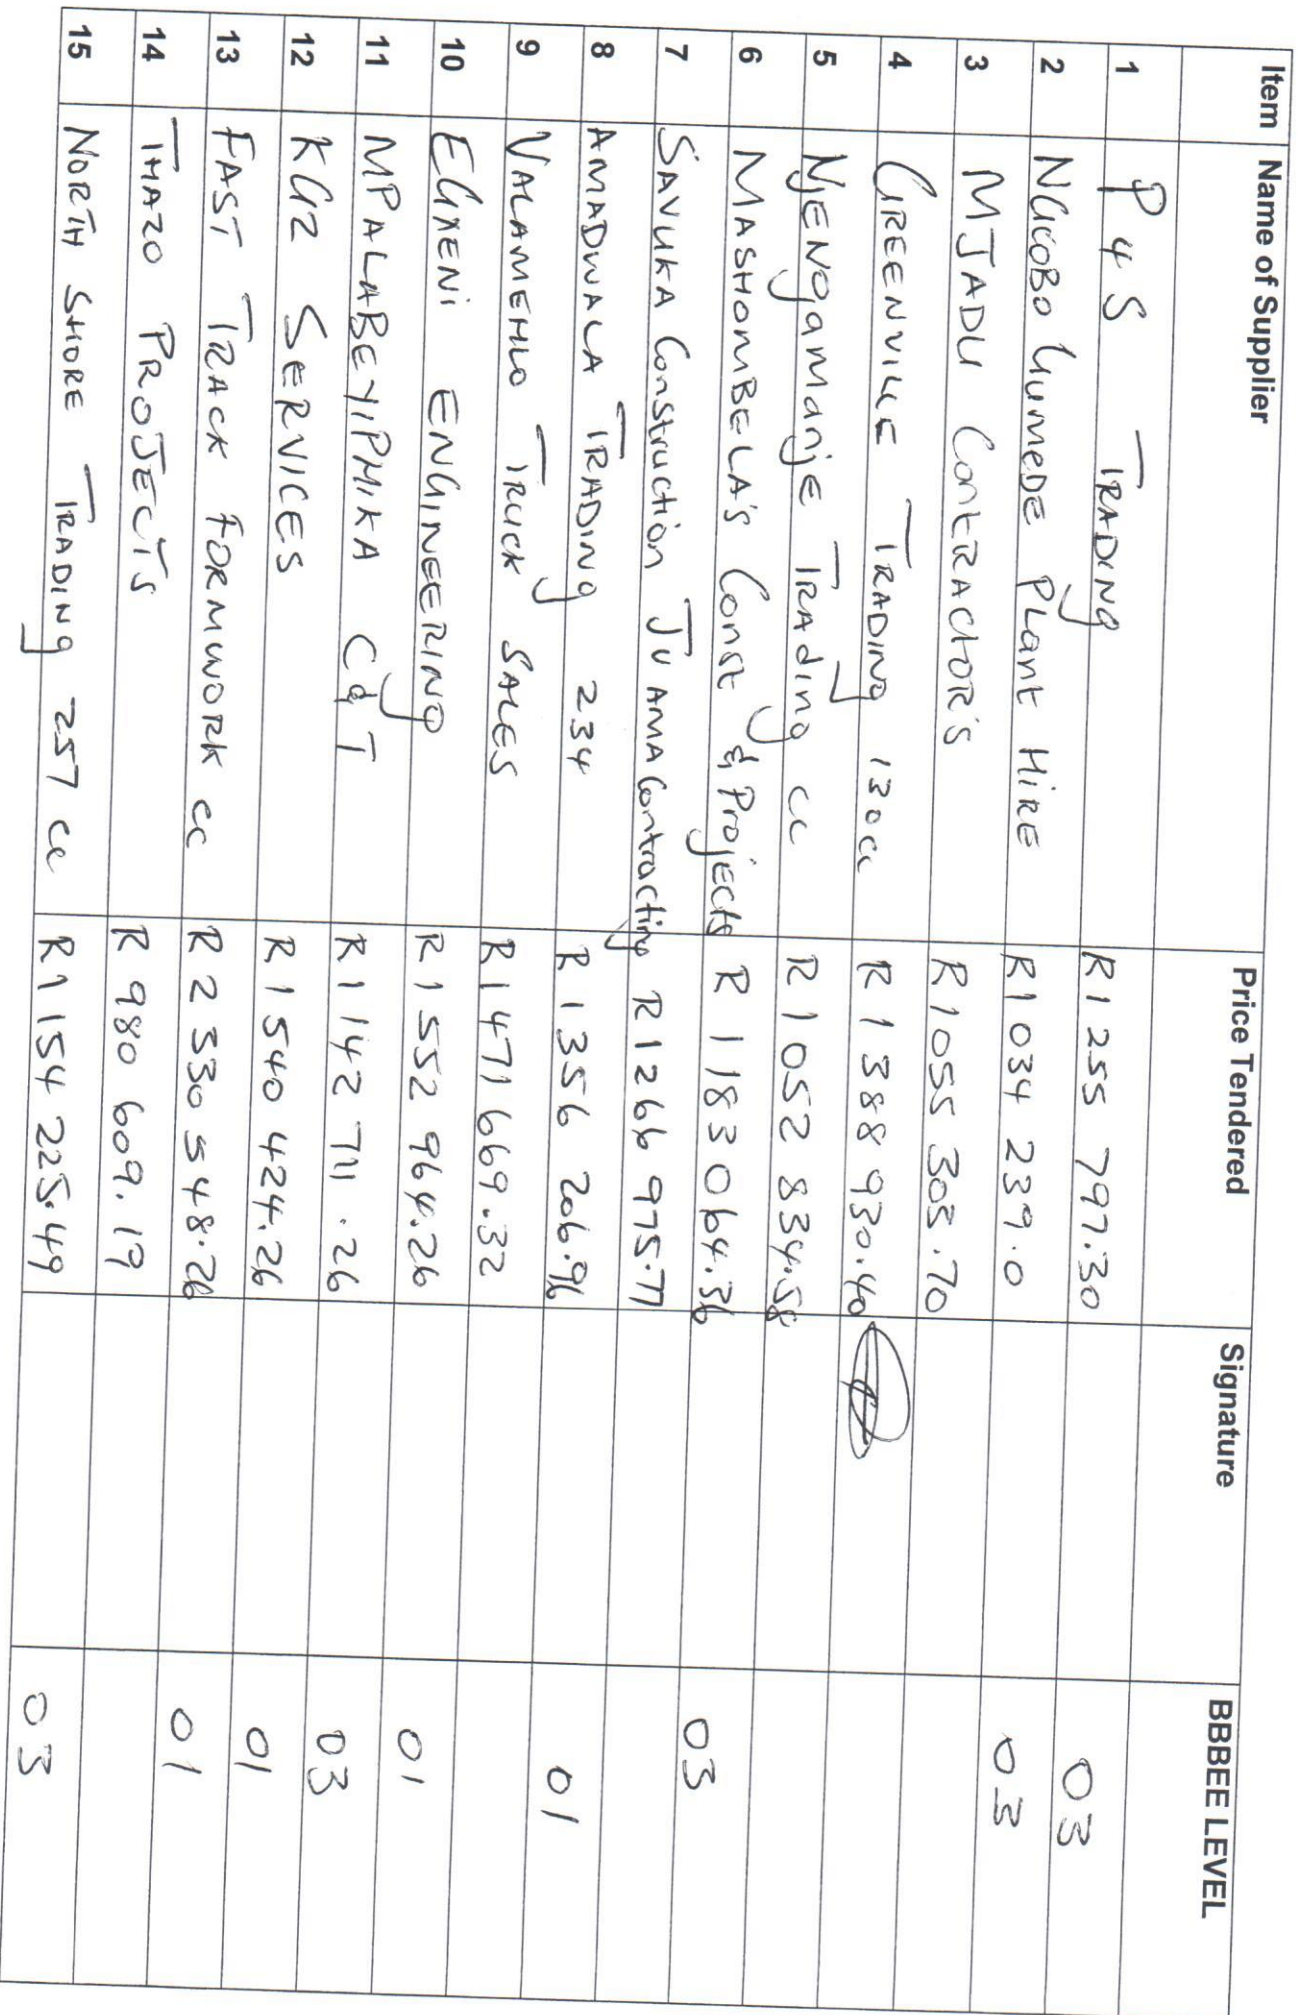 Item Name of Supplier Price Tendered Signature BBBEE LEVEL
1 P 4 S TRADING R1 255 797.30 03
2 NGCOBO GUMEDE PLANT HIRE R1 034 239.0 03
3 MJADU CONTRACTOR'S R1055 303.70
4 GREENVILLE TRADING 130cc R 1 388 930.40
5 NJENOgamanje TRAding cc R 1052 834.58
6 MASHOMBELA'S Const & Projects R 1183 064.36 03
7 SAVUKA Construction JV AMA Contracting R1266 975.77
8 AMADWALA TRADING 234 R 1356 206.96 01
9 VALAMEHLO TRUCK SALES R1 471 669.32
10 EGXENI ENGINEERING R 1 552 964.26 01
11 MPALABEYIPHIKA C & T R1 142 711.26 03
12 KG2 SERVICES R 1 540 424.26 01
13 FAST TRACK FORMWORK cc R 2 330 548.26 01
14 THAZO PROJECTS R 980 609.19
15 NORTH SHORE TRADING 257 cc R1 154 225.49 03